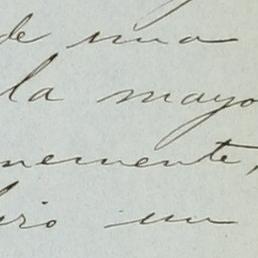 de una
la mayo
nemente,
un